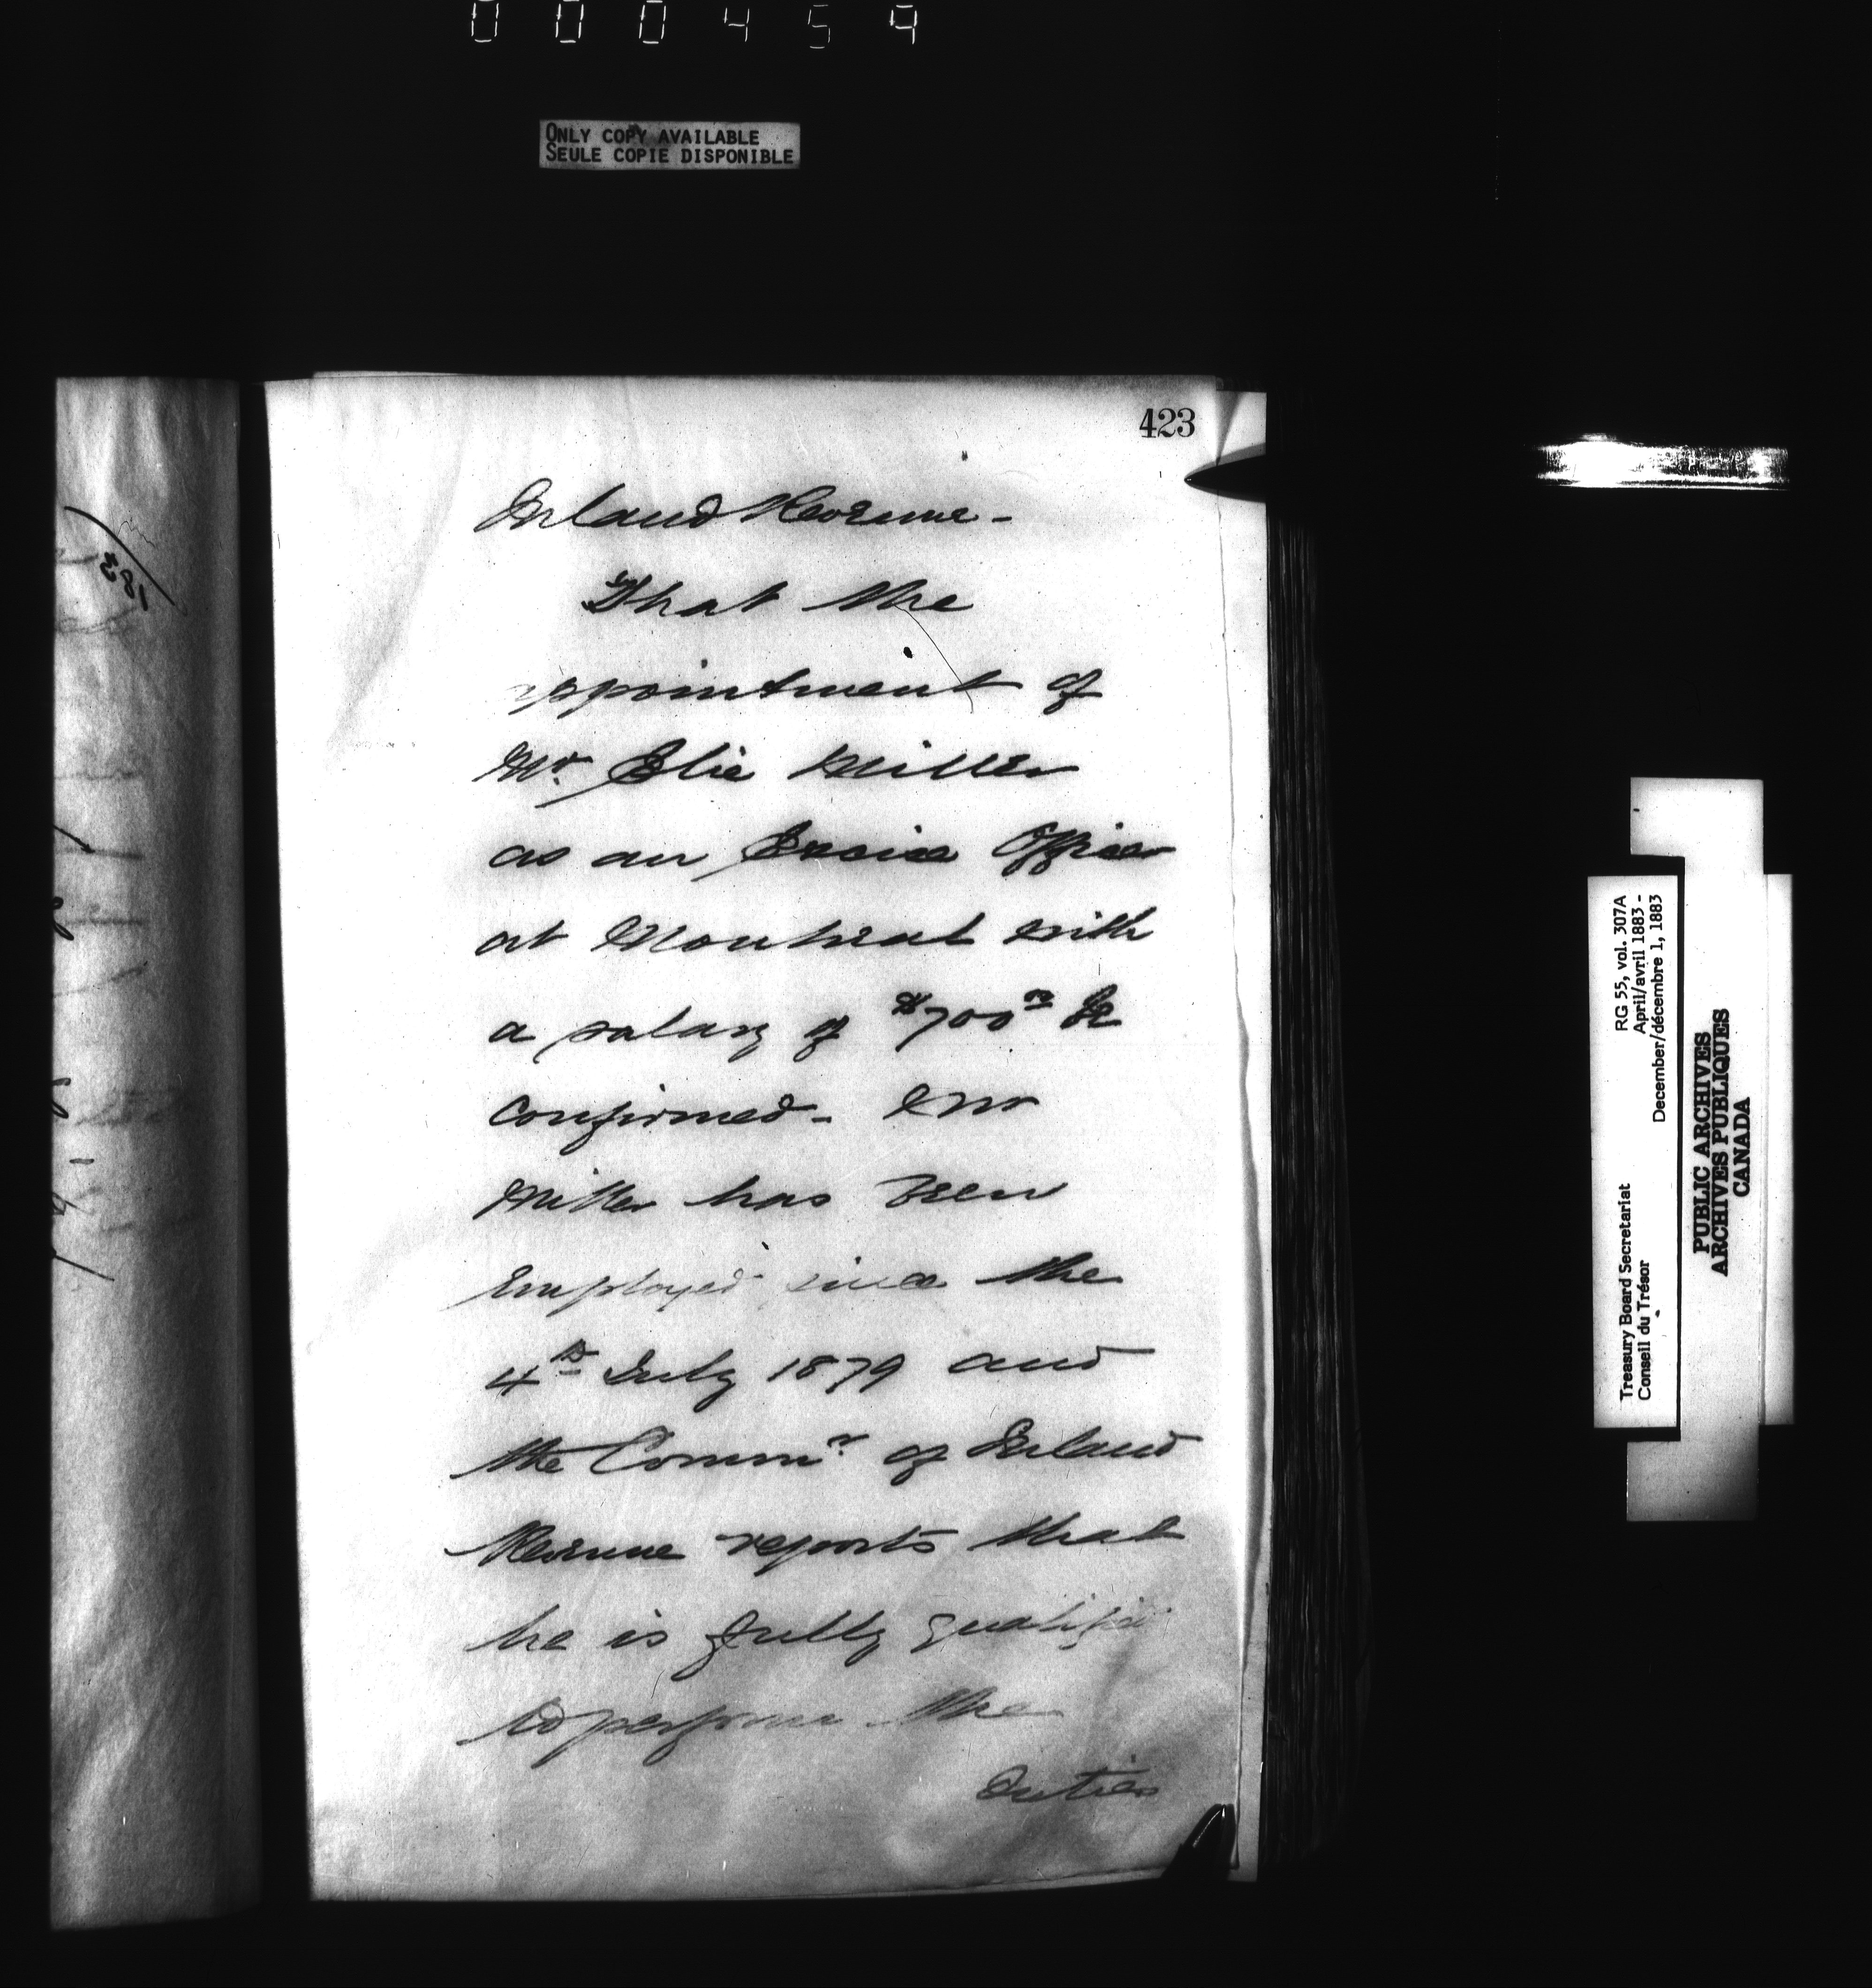 000459
ONLY COPY AVAILABLE
SEULE COPIE DISPONIBLE
423
Inland Revenue -
That the
appointment of
Mr. Elie Miller
as an Excise Officer
at Montreal with
a salary of $700.00 be
confirmed - Mr
Miller has been
employed since the
4th July 1879 and
the Commr. of Inland
Revenue reports that
he is fully qualified
to perform the
duties
RG 55, vol. 307A
April/avril 1883 -
December/décembre 1, 1883
Treasury Board Secretariat
Conseil du Trésor
PUBLIC ARCHIVES
ARCHIVES PUBLIQUES
CANADA